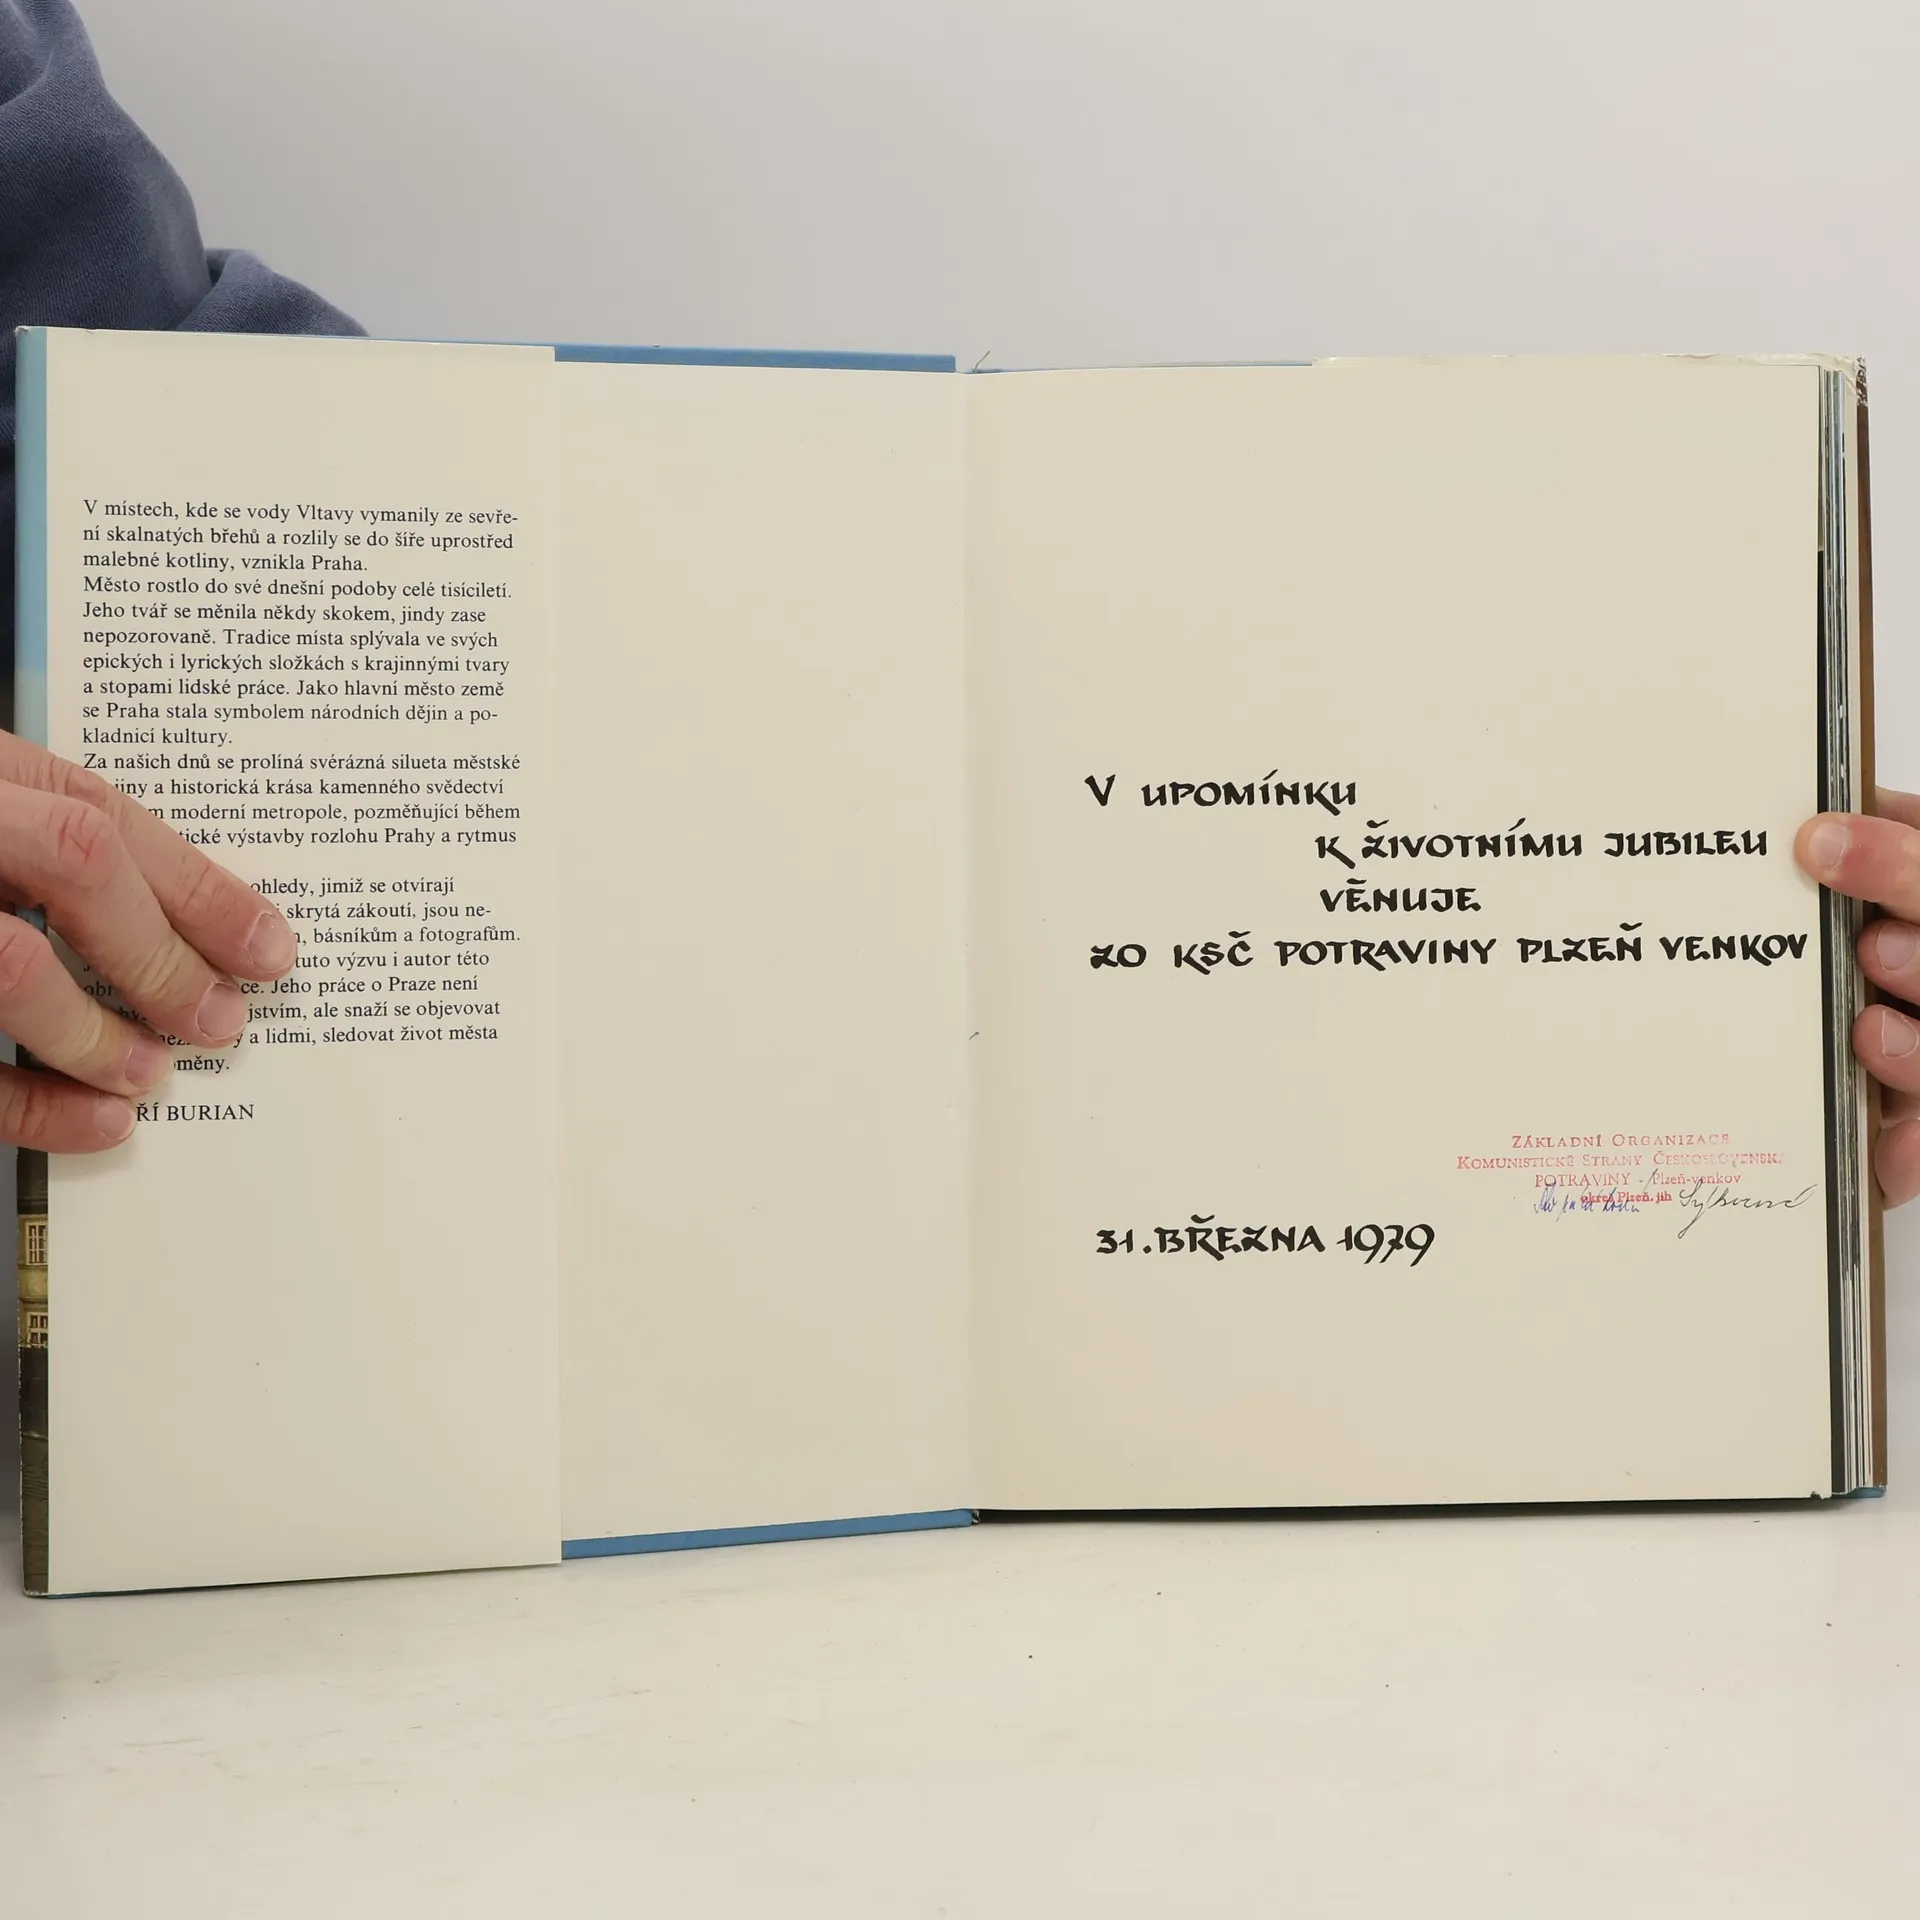 V místech, kde se vody Vltavy vymanily ze sevře-
ní skalnatých břehů a rozlily se do šíře uprostřed
malebné kotliny, vznikla Praha.
Město rostlo do své dnešní podoby celé tisíciletí.
Jeho tvář se měnila někdy skokem, jindy zase
nepozorovaně. Tradice místa splývala ve svých
epických i lyrických složkách s krajinnými tvary
a stopami lidské práce. Jako hlavní město země
se Praha stala symbolem národních dějin a po-
kladnicí kultury.
Za našich dnů se prolíná svérázná silueta městské
a historická krása kamenného svědectví
moderní metropole, pozměňující během
výstavby rozlohu Prahy a rytmus
jimiž se otvírají
skrytá zákoutí, jsou ne-
básníkům a fotografům.
tuto výzvu i autor této
Jeho práce o Praze není
ale snaží se objevovat
a lidmi, sledovat život města
BURIAN
V UPOMÍNKU
K ŽIVOTNÍMU JUBILEU
VĚNUJE
ZO KSČ POTRAVINY PLZEŇ VENKOV
ZÁKLADNÍ ORGANIZACE
KOMUNISTICKÉ STRANY ČESKOSLOVENSK
POTRAVINY - Plzeň-venkov
okres Plzeň. jih
31. BŘEZNA 1979